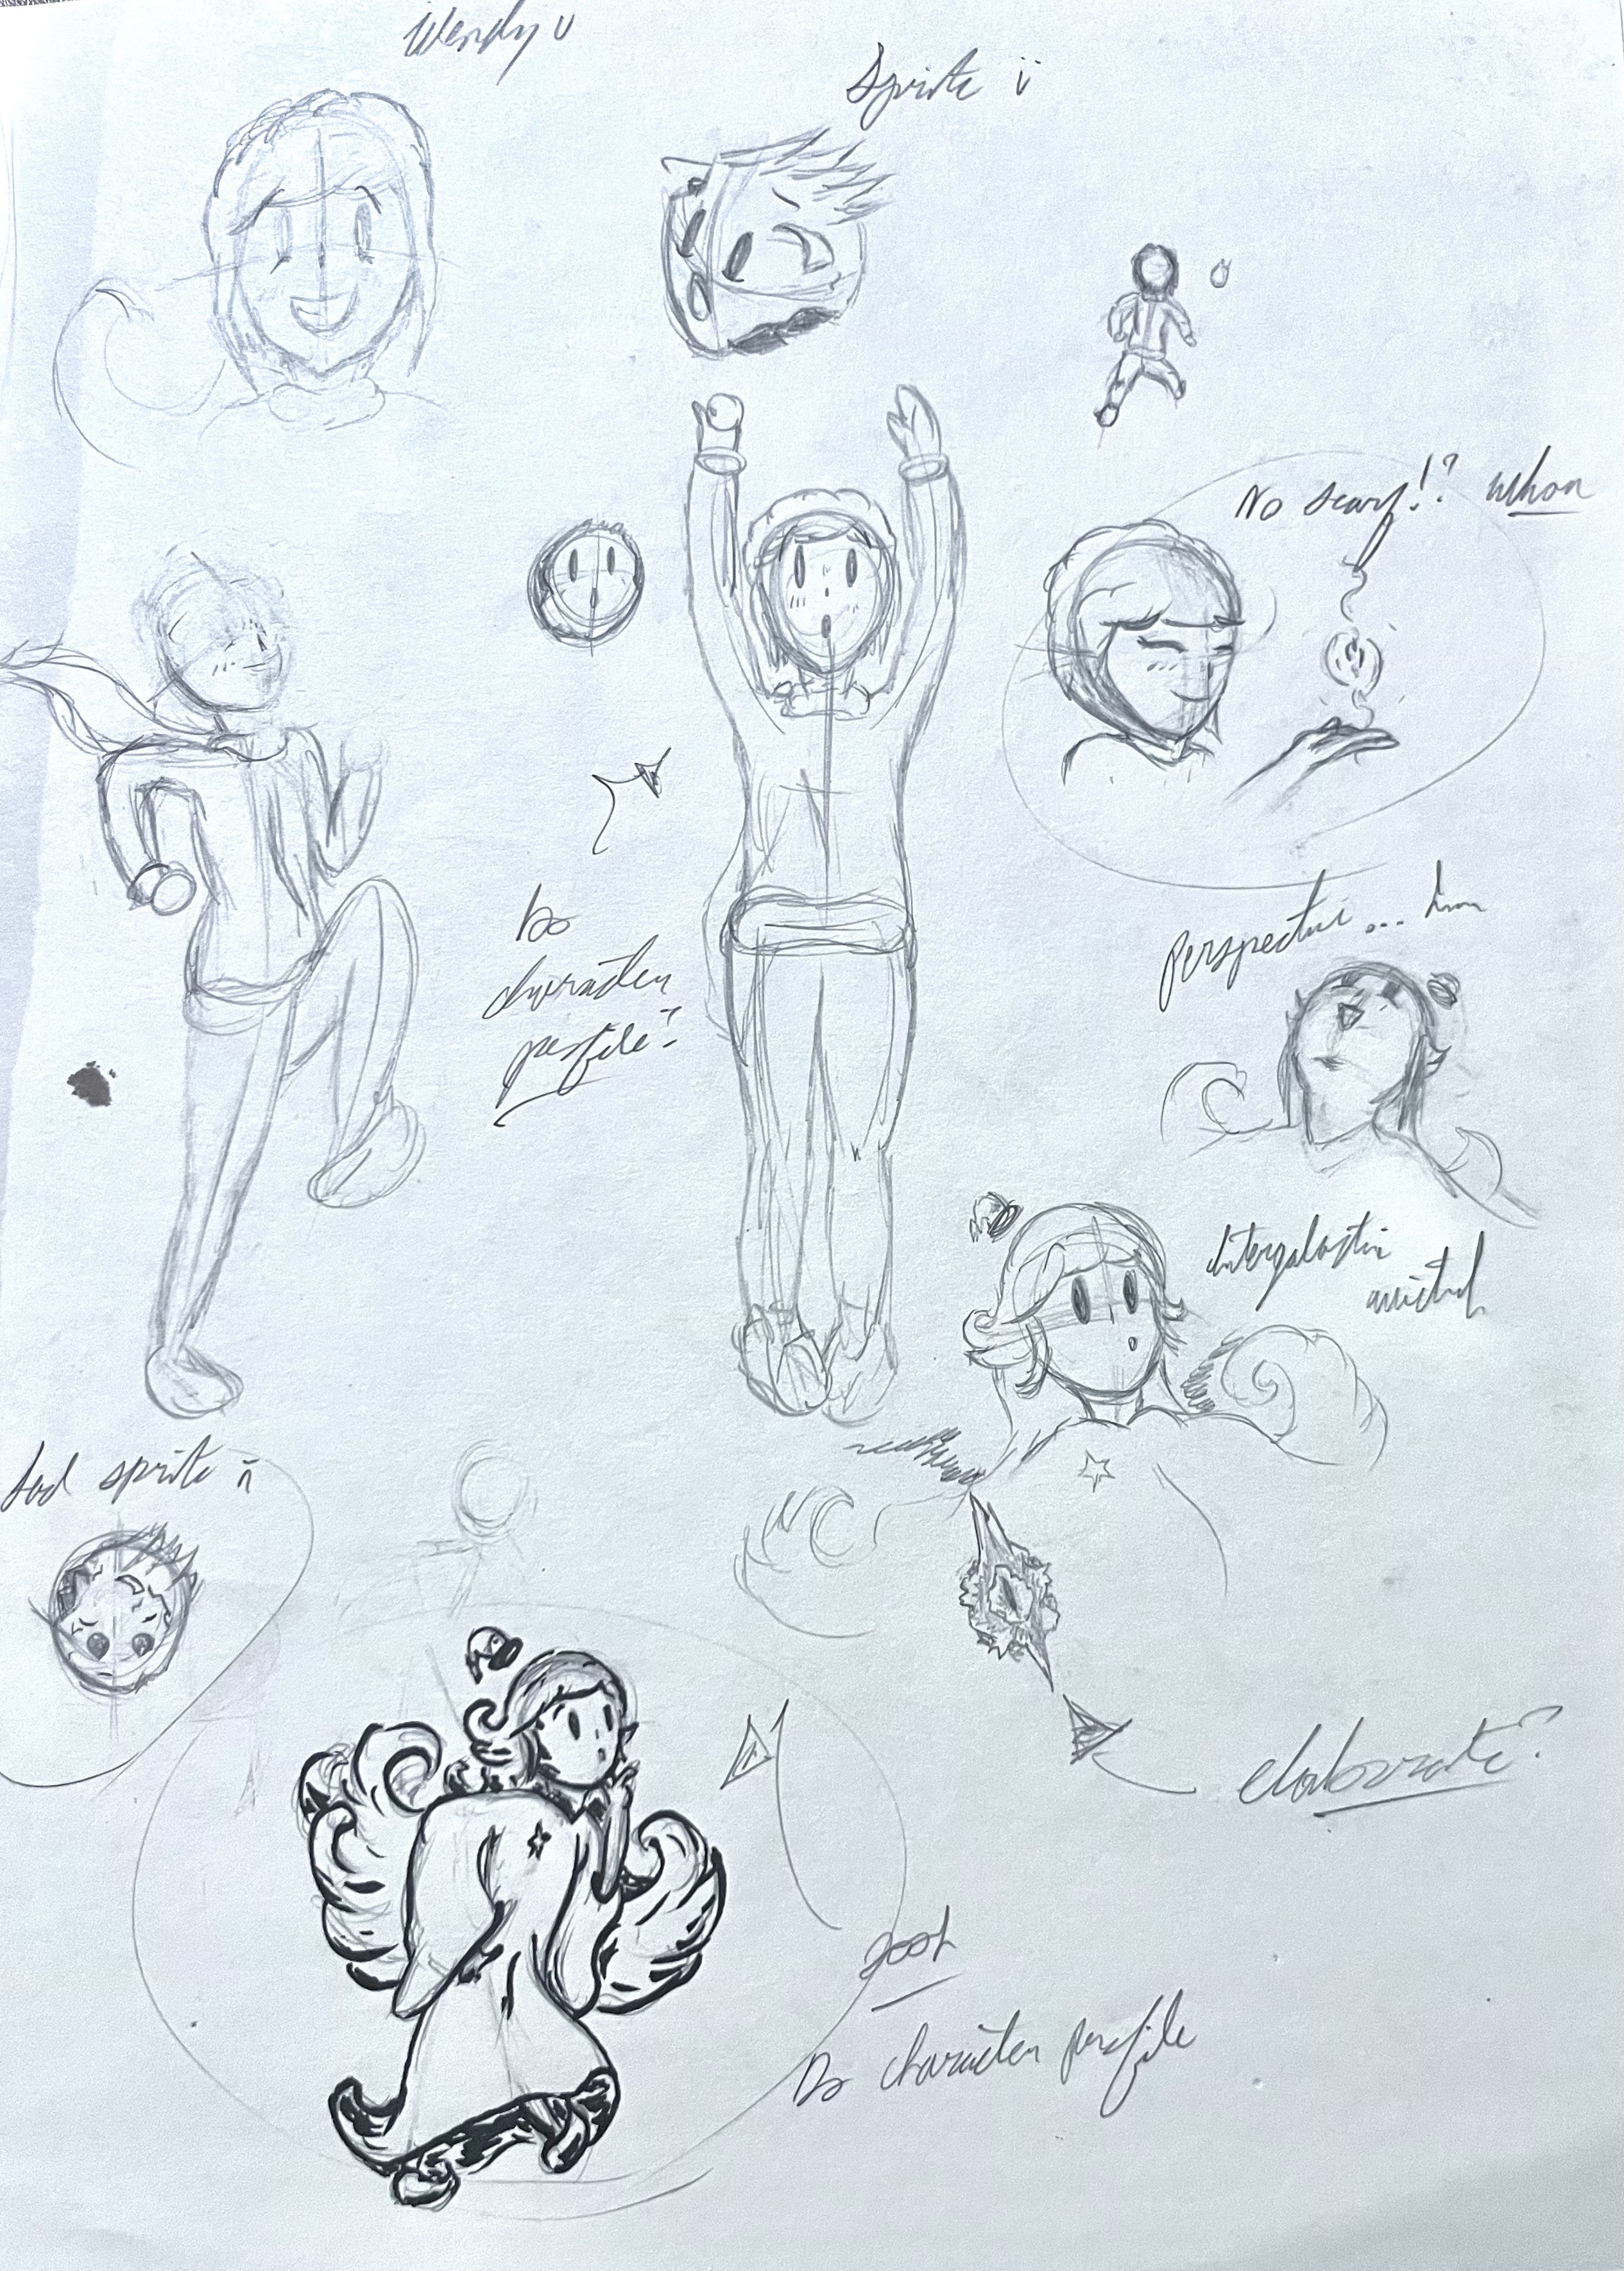 Wendy U
Sprite ü
No scarf!? whoa
Do
character
profile?
perspective... hm
Intergalactic
Sad sprite
elaborate?
Do character profile